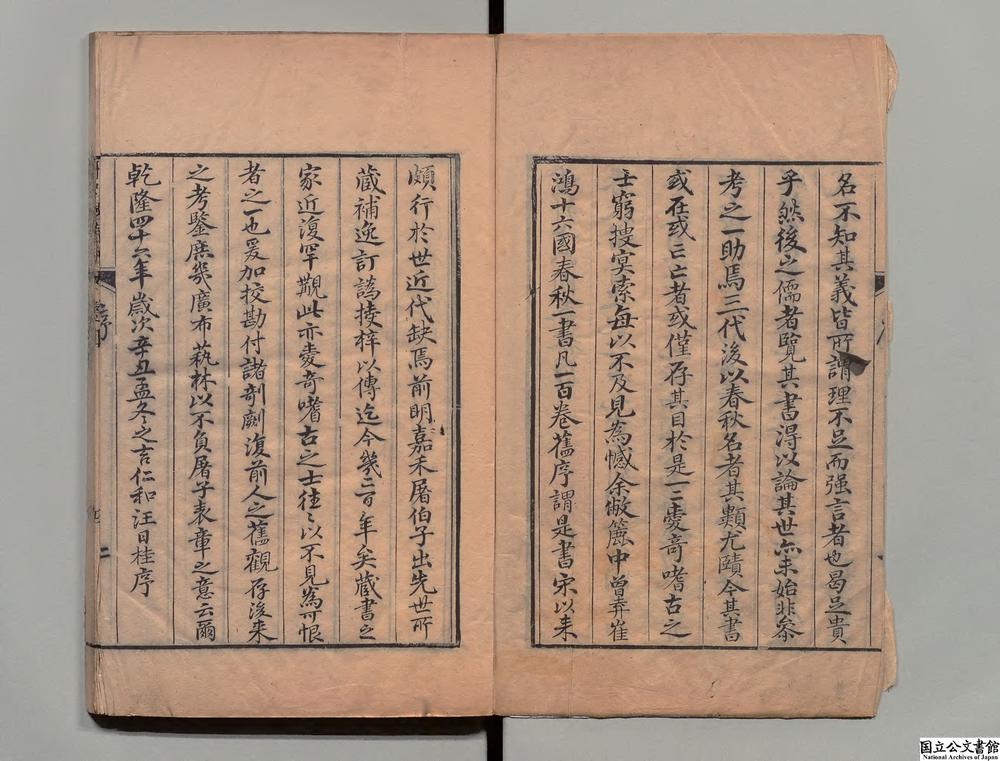 名不知其義皆所謂理不足而强言者也曷足貴
乎然後之儒者覽其書得以論其世亦未始非叅
考之一助焉三代後以春秋名者其類尤賾今其書
或在或亡亡者或僅存其目於是一二愛奇嗜古之
士窮搜冥索每以不及見為憾余敝簏中曾弆崔
鴻十六國春秋一書凡一百卷舊序謂是書宋以来
頗行於世近代缺焉前明嘉禾屠伯子出先世所
蔵補逸訂譌授梓以傳迄今幾二百年矣蔵書之
家近復罕觀此亦愛奇嗜古之士往々以不見為可恨
者之一也爰加挍勘付諸剞劂復前人之舊觀存後来
之考鑒庶幾廣布藝林以不負屠子表章之意云爾
乾隆四十六年歲次辛丑孟冬之吉仁和汪日桂序
序
二
国立公文書館
National Archives of Japan